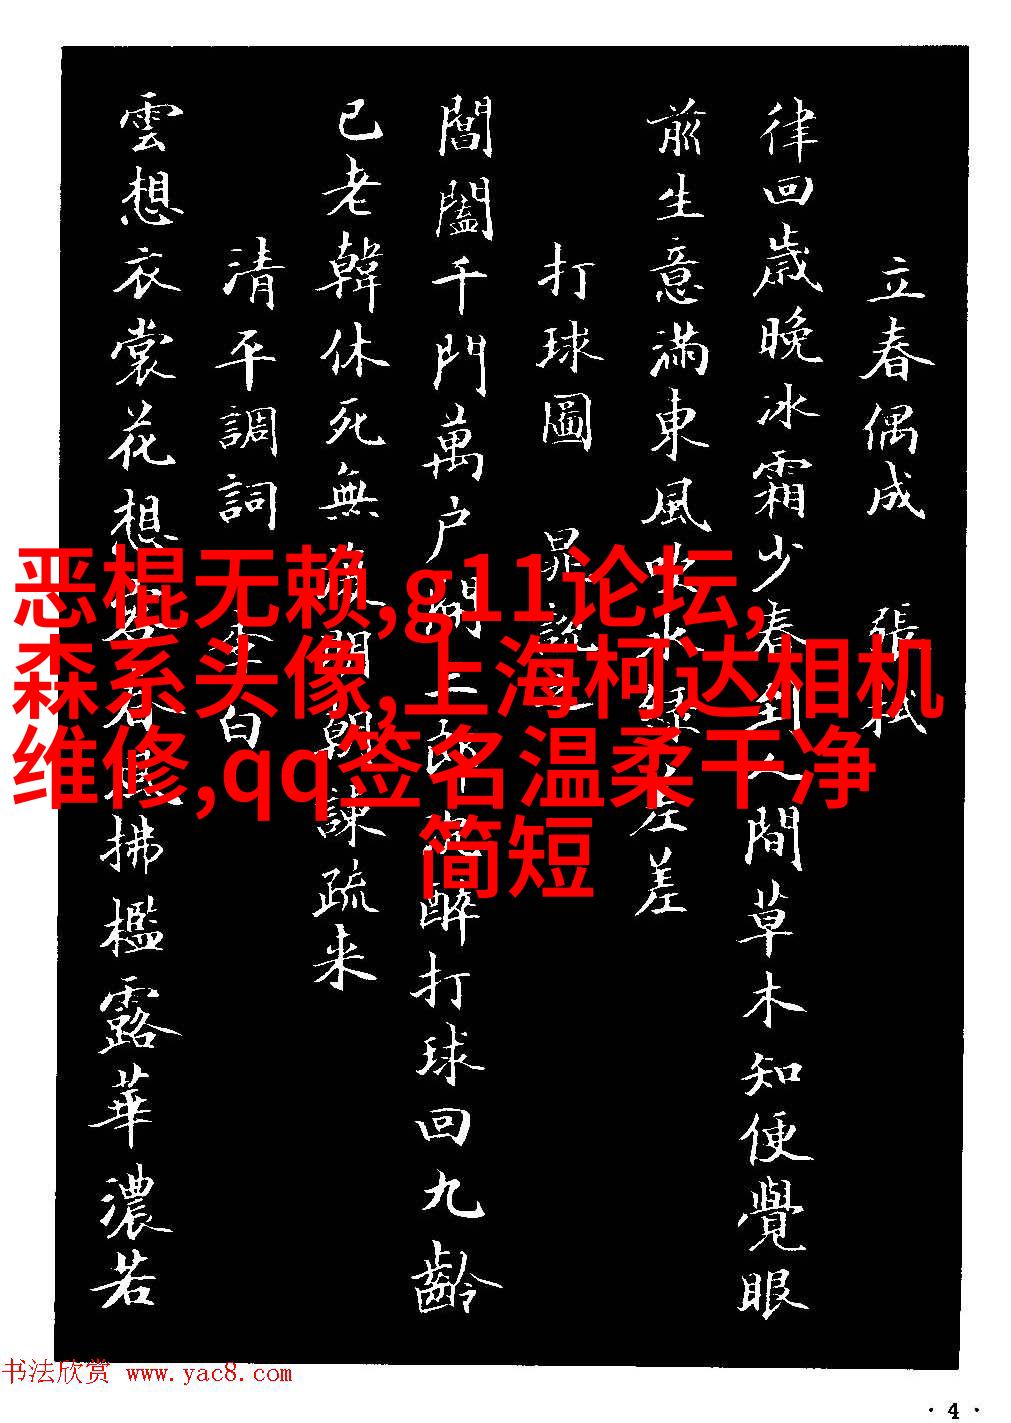 立春偶成 張栻
律回歲晚冰霜少春到人間草木知便覺眼
前生意滿東風吹水綠差差
打球圖 晁說之
閶闔千門萬户開三郎沉醉打球回九齡
已老韓休死無復明朝諫疏来
清平調詞 李白
雲想衣裳花想容春風拂檻露華濃若
恶棍无赖,g11论坛,
森系头像,上海柯达相机
维修,qq签名温柔干净
简短
书法欣赏 www.yac8.com
· 4 ·